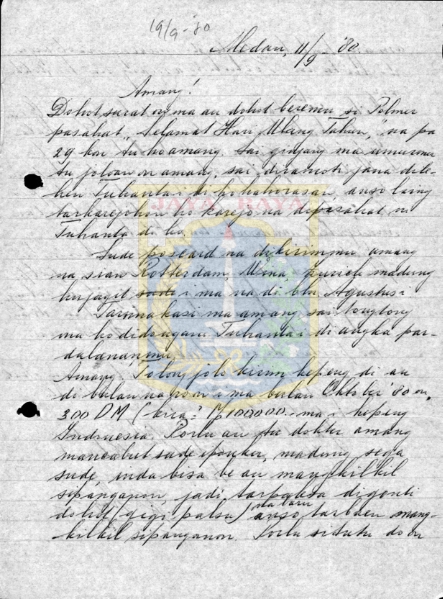 19/9-'80
Medan, 11/9 '80
Amang!
Dohot surat on ma au dohot beremu si Polmer
pasahat, "Selamat Hari Ulang Tahun," na pa
29 kon tu ho amang. Sai ginjang ma umurmu
tu joloan on amang, sai diramoti jana dile
hen Tuhanta di hahorasan, asi laing
tarkarejohon ho karejo na dipasahat ni
Tuhanta di ho.
Sude poscard na dikirimmu amang
na sian Rotterdam, Wina madung
hujagit i ma na di bln Agustus.
Tarima kasi ma amang sai tongtong
ma ho didongani Tuhanta di angka par
dalananmi.
Amang! Tolong jolo kirim hepeng di au
di bulan na ro on i ma bulan Oktober '80 on.
300 DM (-kira2 Rp 100000.- ma i hepeng
Indonesia. Porlu au tu dokter amang
mancabut sude iponku, madung sega
sude, nda bisa be au mangkilkil
sipanganon, jadi tarpaksa diganti
dohot (gigi palsu) na baru
asa tarbaen mang-
kilkil sipanganon. Porlu do on